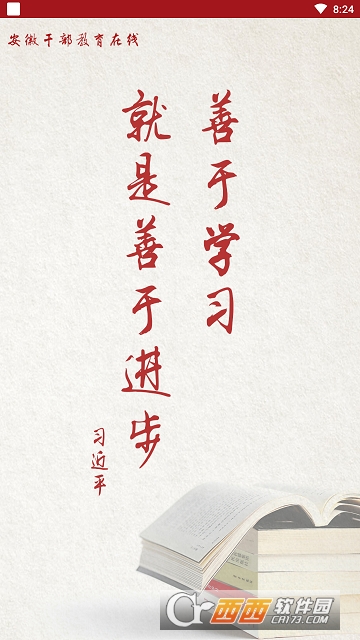 8:24
安徽干部教育在线
善于学习
就是善于进步
习近平
西西软件园
CR173.com